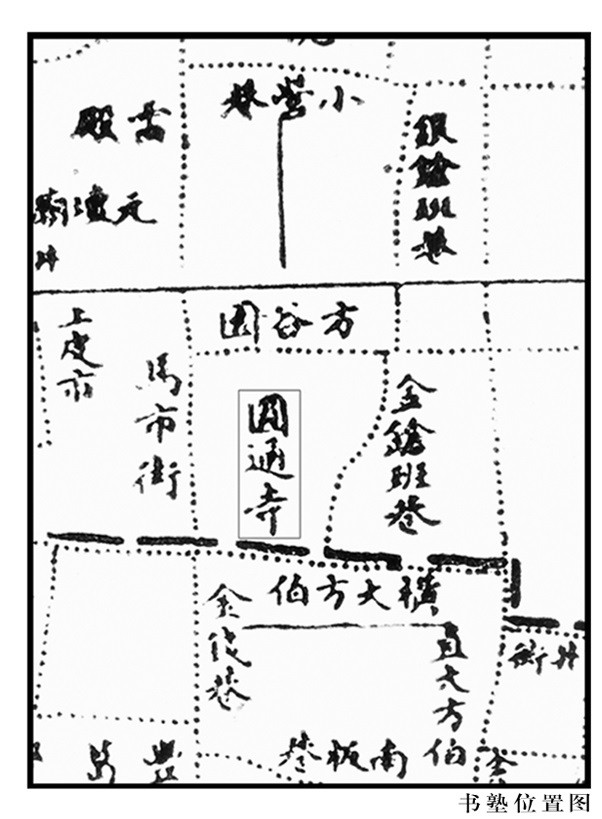 小營巷
銀鎗班巷
元壇廟
井
方谷園
上皮市
馬市街
圓通寺
金鎗班巷
橫大方伯
直大方伯
井街
南板巷
书塾位置图